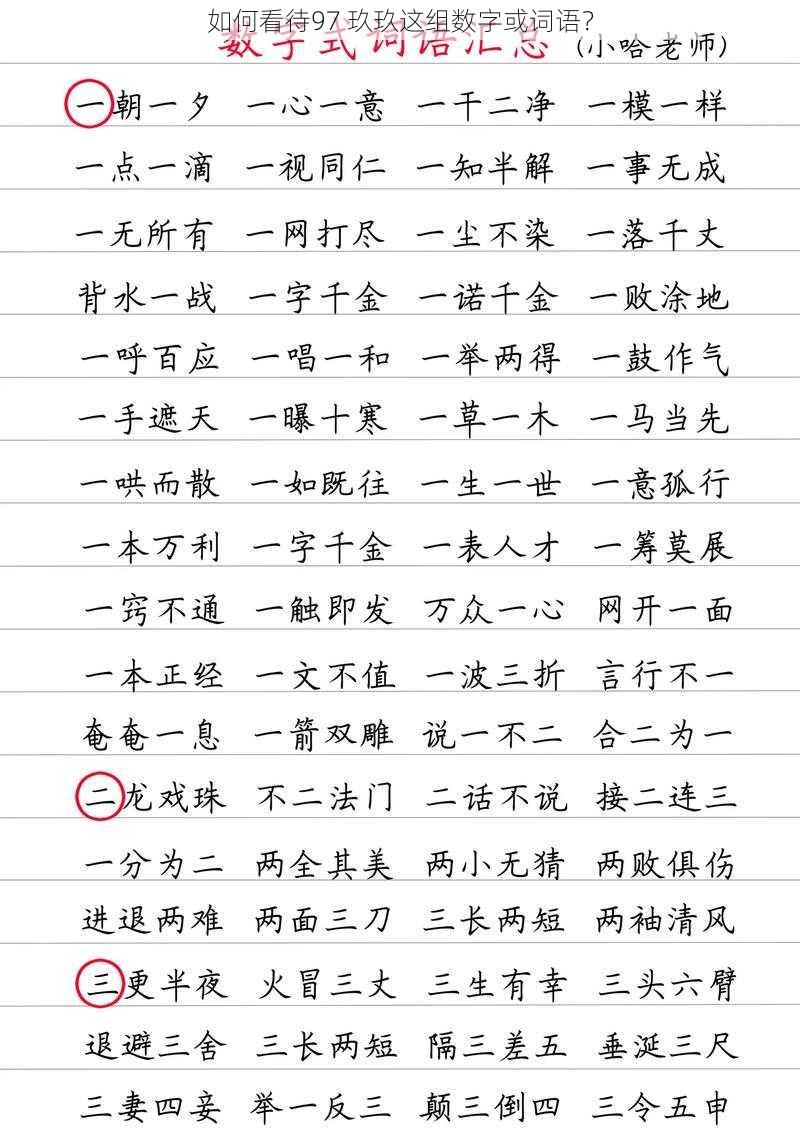 如何看待97 玖玖这组数字或词语？
数字式词语汇总 (小哈老师)
一朝一夕 一心一意 一干二净 一模一样
一点一滴 一视同仁 一知半解 一事无成
一无所有 一网打尽 一尘不染 一落千丈
背水一战 一字千金 一诺千金 一败涂地
一呼百应 一唱一和 一举两得 一鼓作气
一手遮天 一曝十寒 一草一木 一马当先
一哄而散 一如既往 一生一世 一意孤行
一本万利 一字千金 一表人才 一筹莫展
一窍不通 一触即发 万众一心 网开一面
一本正经 一文不值 一波三折 言行不一
奄奄一息 一箭双雕 说一不二 合二为一
二龙戏珠 不二法门 二话不说 接二连三
一分为二 两全其美 两小无猜 两败俱伤
进退两难 两面三刀 三长两短 两袖清风
三更半夜 火冒三丈 三生有幸 三头六臂
退避三舍 三长两短 隔三差五 垂涎三尺
三妻四妾 举一反三 颠三倒四 三令五申